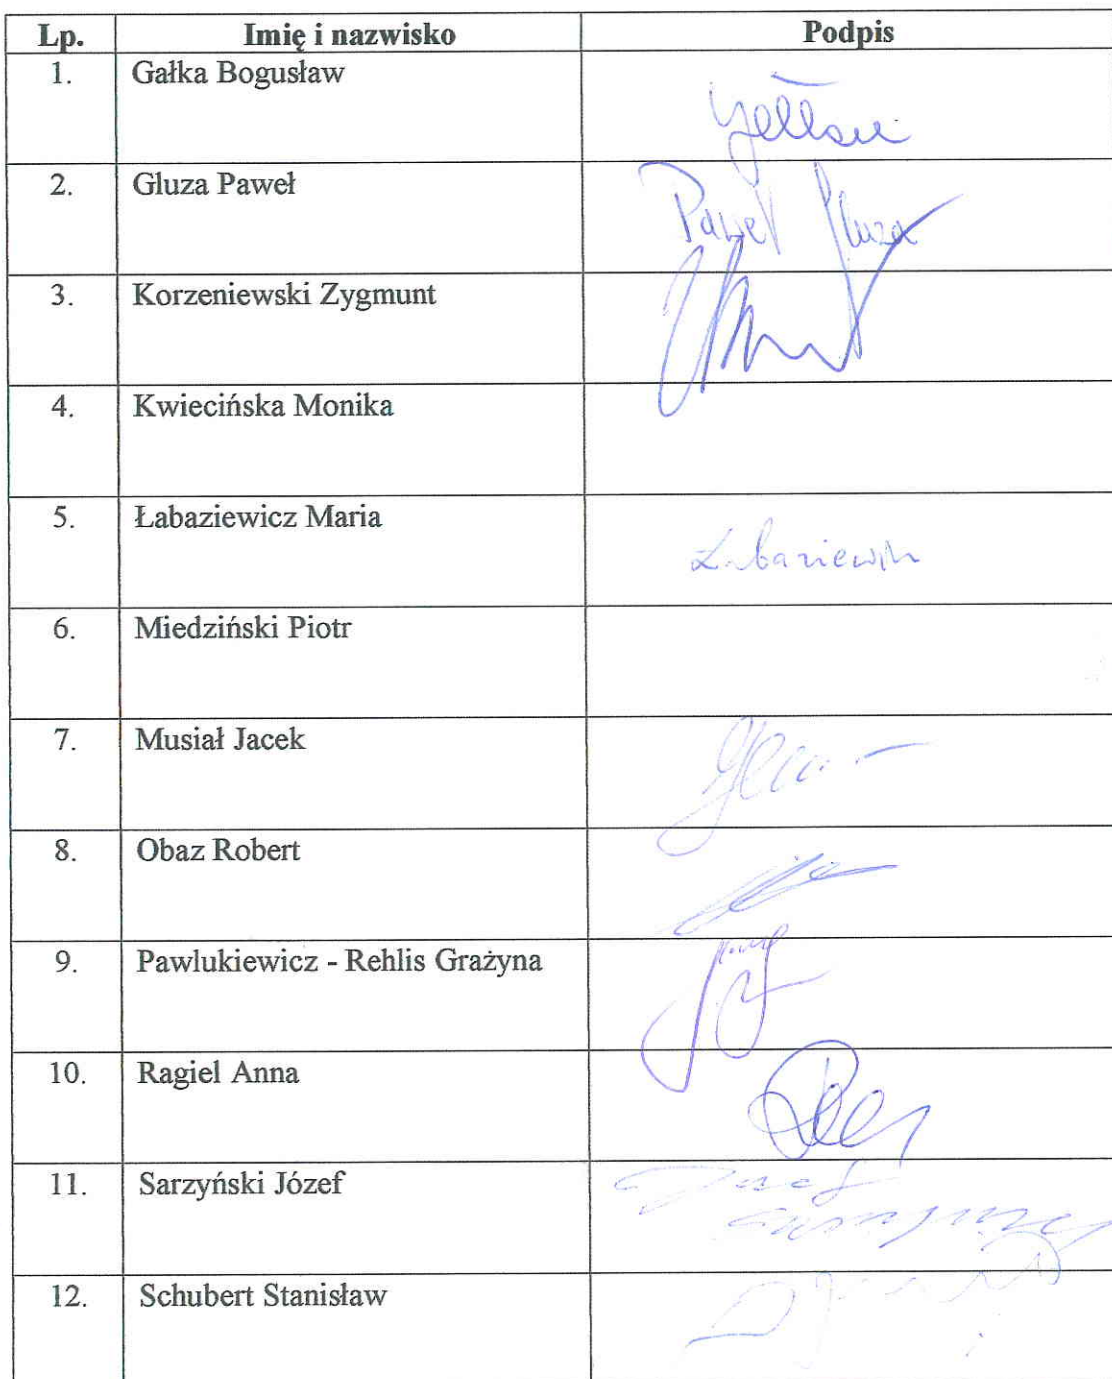 Lp. Imię i nazwisko Podpis
1. Gałka Bogusław
2. Gluza Paweł Paweł Gluza
3. Korzeniewski Zygmunt
4. Kwiecińska Monika
5. Łabaziewicz Maria Łabaziewicz
6. Miedziński Piotr
7. Musiał Jacek
8. Obaz Robert
9. Pawlukiewicz - Rehlis Grażyna
10. Ragiel Anna
11. Sarzyński Józef Józef
12. Schubert Stanisław